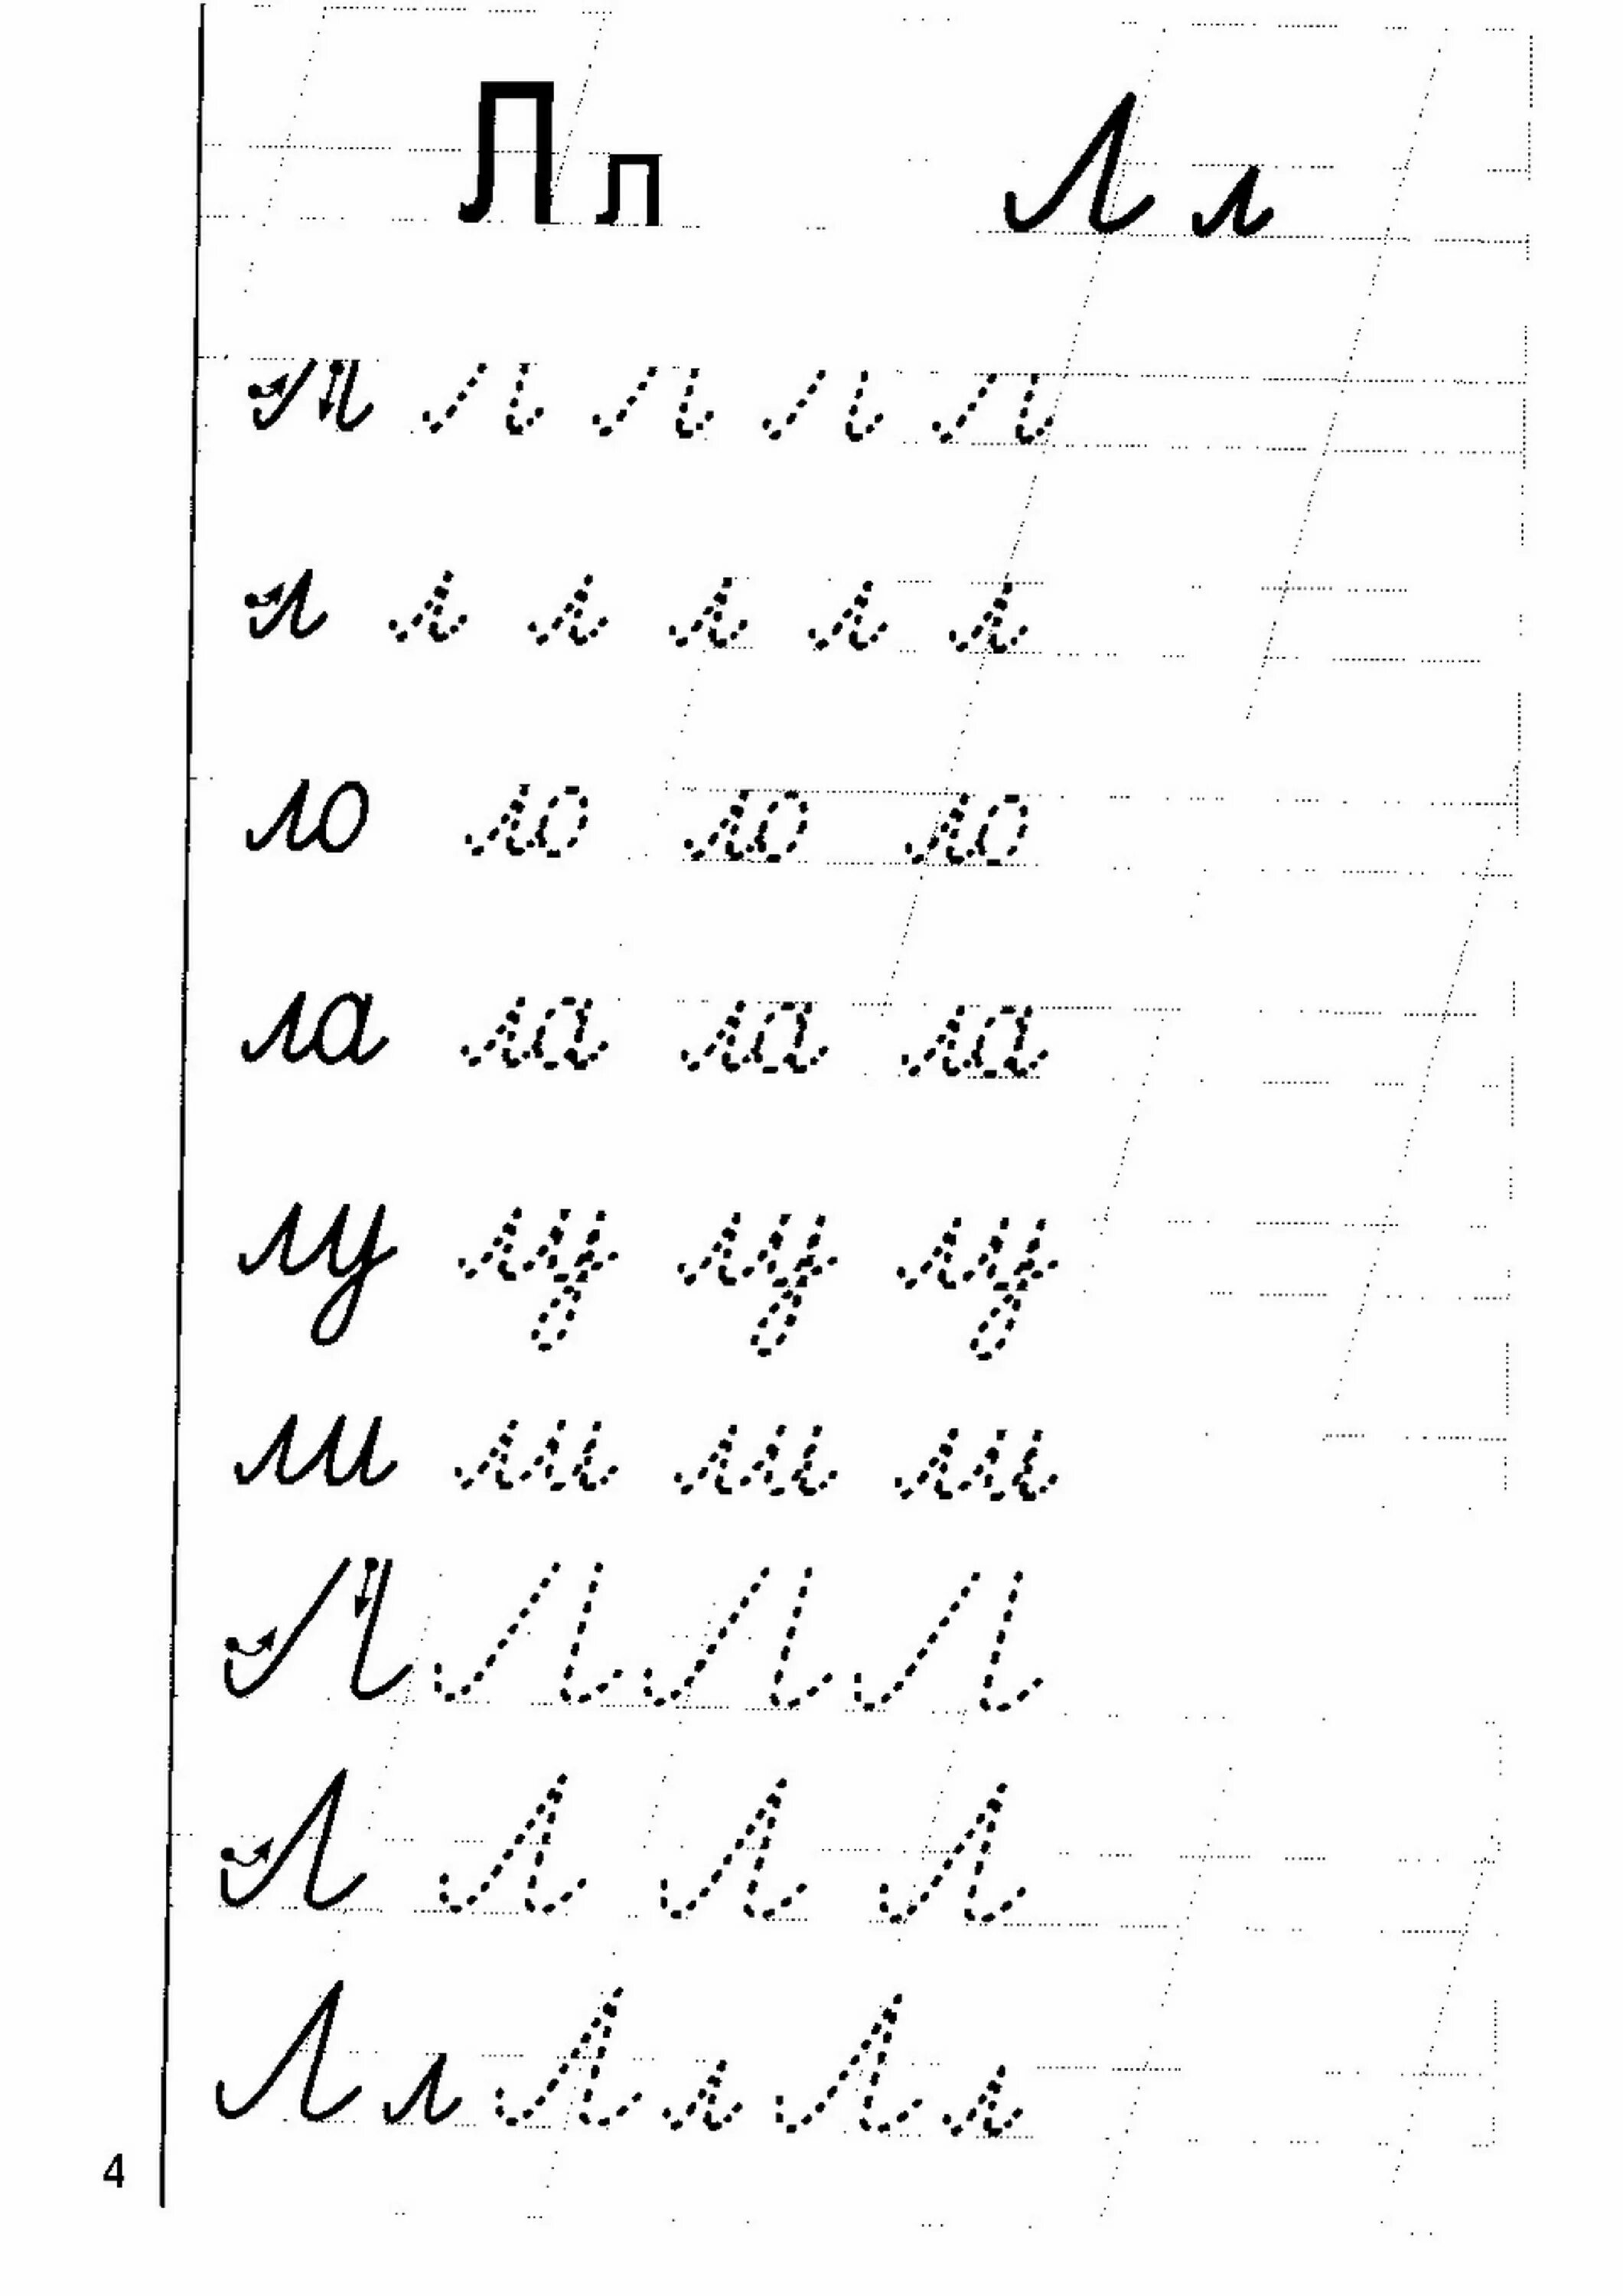 Л л Л л
л л л л л
л л л л л л
ло ло ло ло
ла ла ла ла
лу лу лу лу
ли ли ли ли
Л Л Л Л
Л Л Л Л
Л л Л л Л л
4